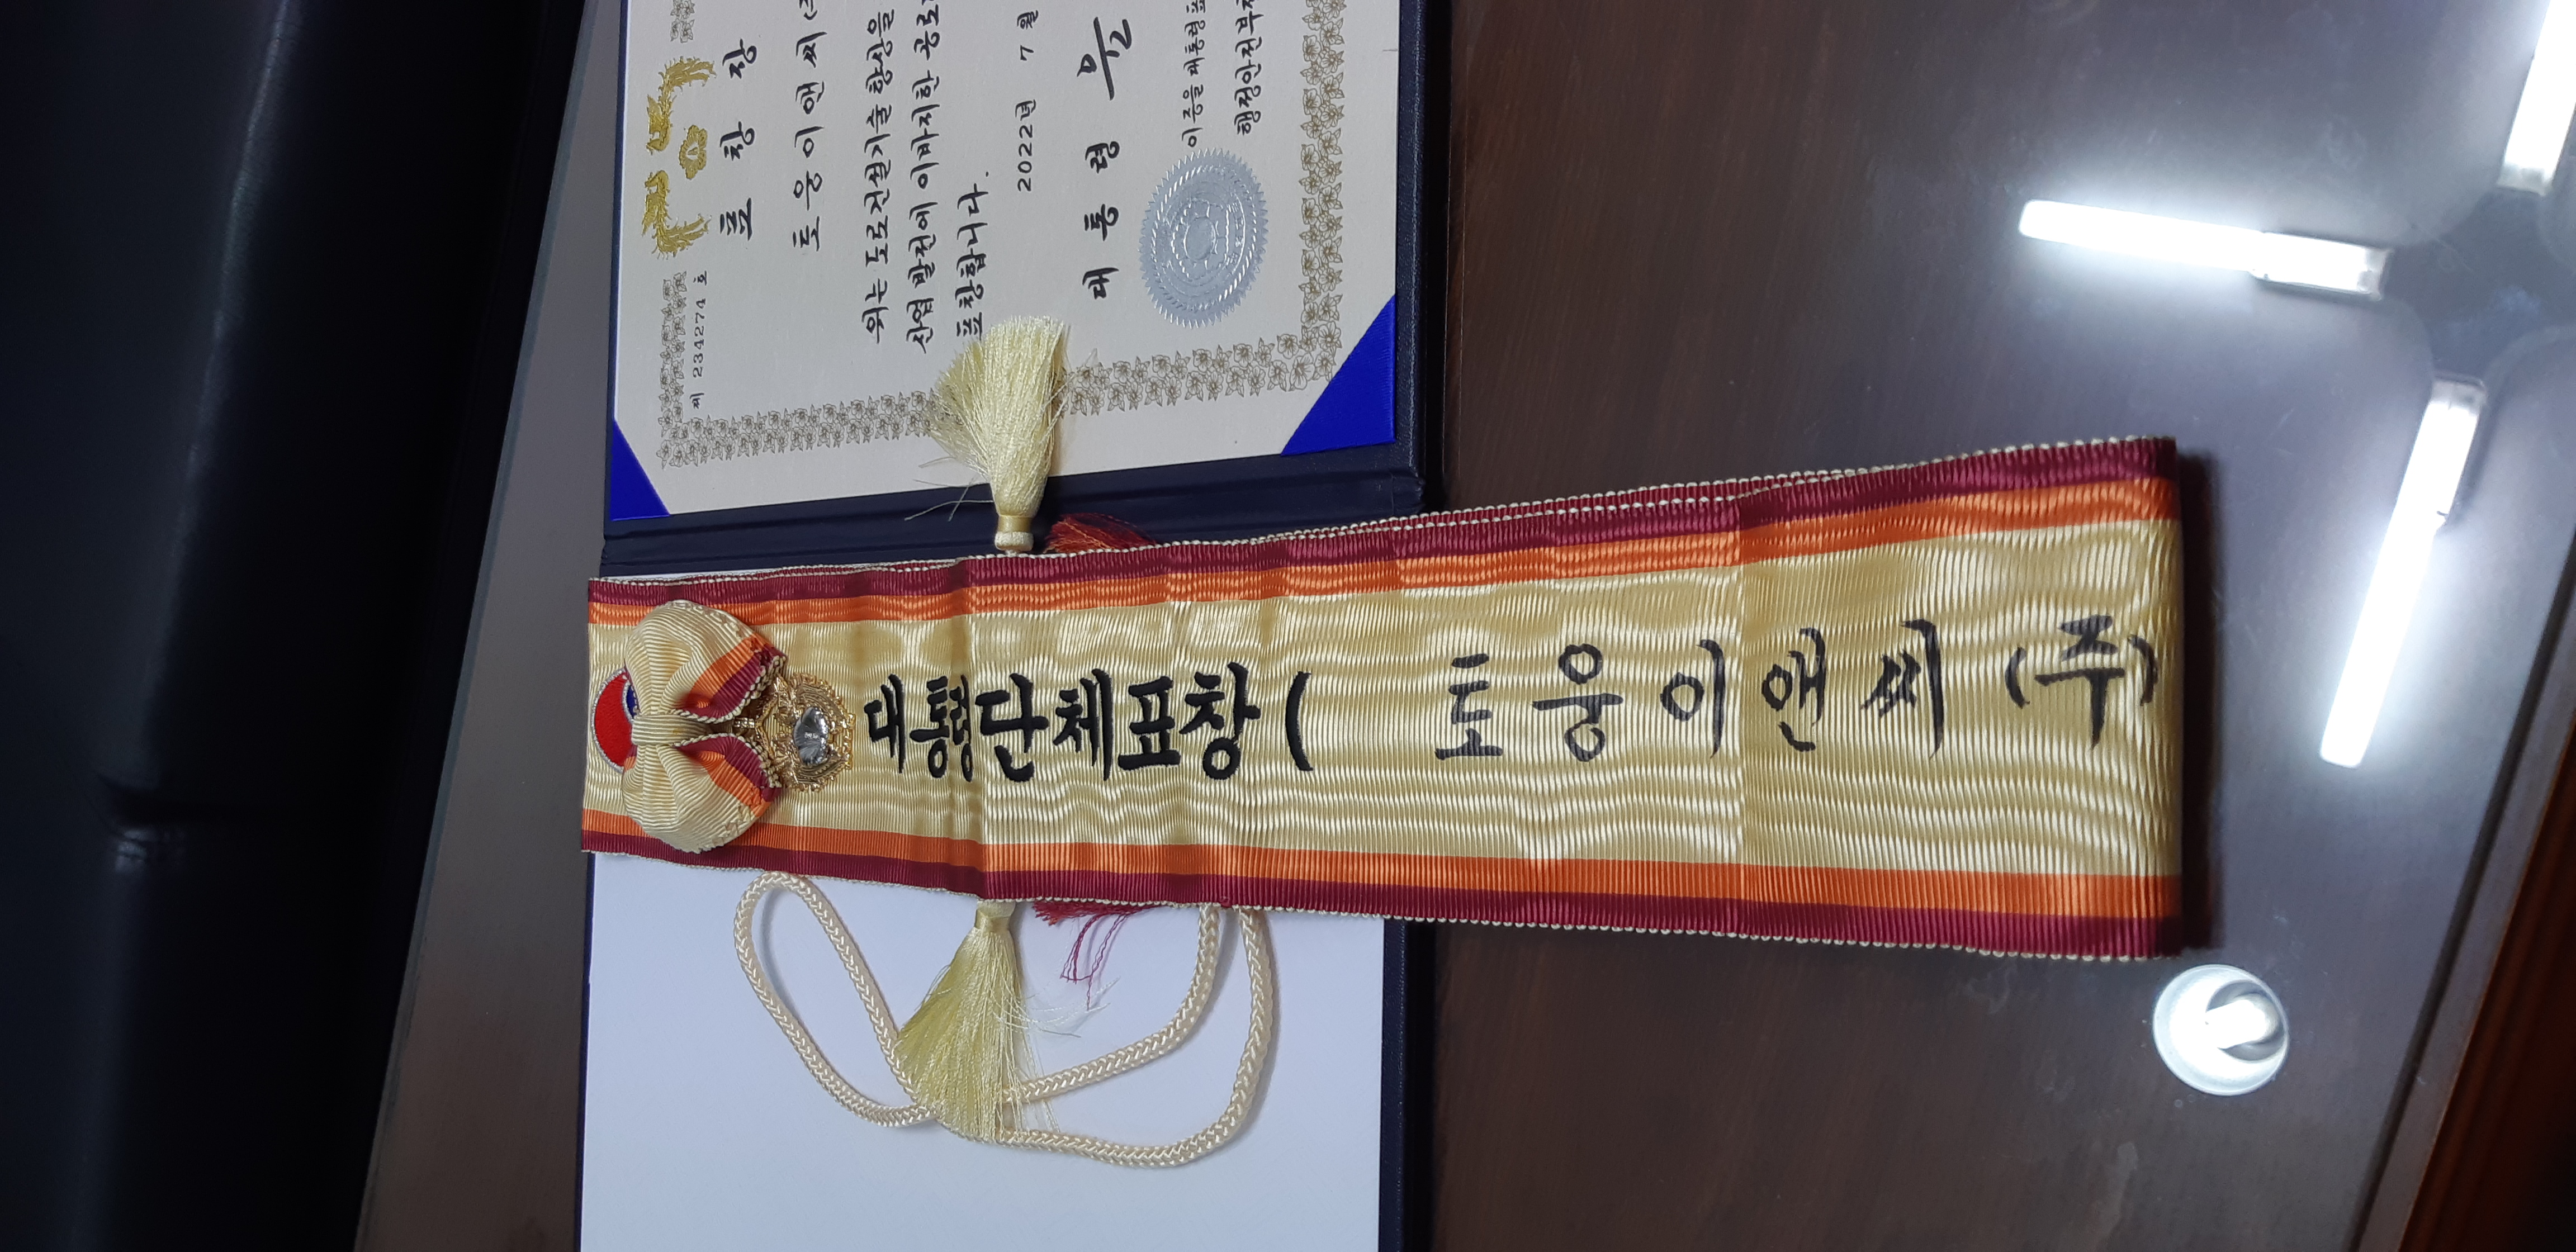 제 234274 호
표 창 장
토 웅 이 앤 씨 (주
위는 도로건설기술 향상을
산업 발전에 이바지한 공로
표창합니다.
2022년 7 월
대 통 령 윤
이 증을 대통령표
행정안전부
대통령단체표창 ( 토웅이앤씨 (주)